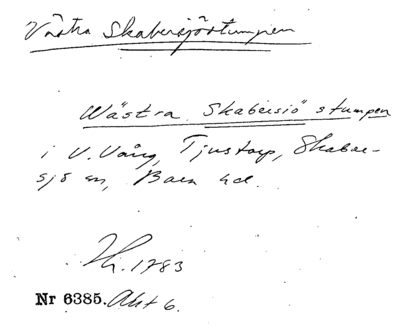 Västra Skabersjöstumpen
Wästra Skabersiö stumpen
i V. Vång, Tjustorp, Skaber-
sjö sn, Bara hd.
1783
Nr 6385. Akt 6.